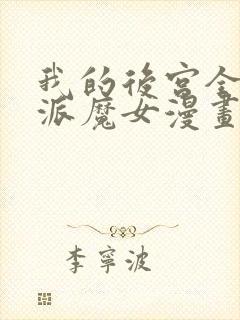 我的後宮全
派魔女漫畫
李寧波